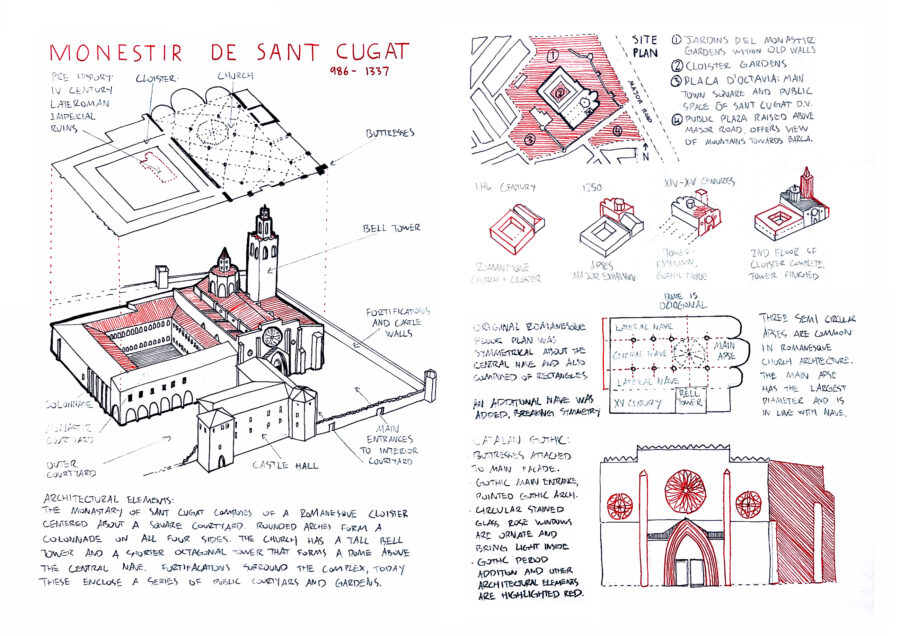 MONESTIR DE SANT CUGAT
986 - 1337
PRE HISTORY:
IV CENTURY
LATEROMAN
IMPERIAL
RUINS
CLOISTER
CHURCH
BUTTRESSES
BELL TOWER
FORTIFICATIONS
AND CASTLE
WALLS
COLONNADE
MONASTIR
COURTYARD
OUTER
COURTYARD
CASTLE HALL
MAIN
ENTRANCES
TO INTERIOR
COURTYARD
ARCHITECTURAL ELEMENTS:
THE MONASTARY OF SANT CUGAT COMPOSES OF A ROMANESQUE CLOISTER
CENTERED ABOUT A SQUARE COURTYARD. ROUNDED ARCHES FORM A
COLONNADE ON ALL FOUR SIDES. THE CHURCH HAS A TALL BELL
TOWER AND A SHORTER OCTAGONAL TOWER THAT FORMS A DOME ABOVE
THE CENTRAL NAVE. FORTIFACATIONS SURROUND THE COMPLEX, TODAY
THESE ENCLOSE A SERIES OF PUBLIC COURTYARDS AND GARDENS.
SITE
PLAN
MAJOR ROAD
N
1
2
3
4
1 JARDINS DEL MONASTIR
GARDENS WITHIN OLD WALLS
2 CLOISTER GARDENS
3 PLACA D'OCTAVIA: MAIN
TOWN SQUARE AND PUBLIC
SPACE OF SANT CUGAT D.V.
4 PUBLIC PLAZA RAISED ABOVE
MAJOR ROAD, OFFERS VIEW
OF MOUNTAINS TOWARDS BARCA.
11th CENTURY
1250
XIV-XV CENTURIES
ROMANESQUE
CHURCH + CLOISTER
APSES
MAJOR EXPANSION
TOWER
EXTENSION,
GOTHIC FACADE
2ND FLOOR OF
CLOISTER COMPLETE,
TOWER FINISHED
ORIGINAL ROMANESQUE
FLOOR PLAN WAS
SYMMETRICAL ABOUT THE
CENTRAL NAVE AND ALSO
COMPOSED OF RECTANGLES.
AN ADDITIONAL NAVE WAS
ADDED, BREAKING SYMMETRY
DOME IS
OCTOGONAL
LATERAL NAVE
CENTRAL NAVE
MAIN
APSE
LATERAL NAVE
XV CENTURY
BELL
TOWER
THREE SEMI CIRCULAR
APSES ARE COMMON
IN ROMANESQUE
CHURCH ARCHITECTURE.
THE MAIN APSE
HAS THE LARGEST
DIAMETER AND IS
IN LINE WITH NAVE.
CATALAN GOTHIC:
- BUTTRESSES ATTACHED
TO MAIN FACADE.
- GOTHIC MAIN ENTRANCE,
POINTED GOTHIC ARCH.
- CIRCULAR STAINED
GLASS, ROSE WINDOWS
ARE ORNATE AND
BRING LIGHT INSIDE
- GOTHIC PERIOD
ADDITION AND OTHER
ARCHITECTURAL ELEMENTS
ARE HIGHLIGHTED RED.